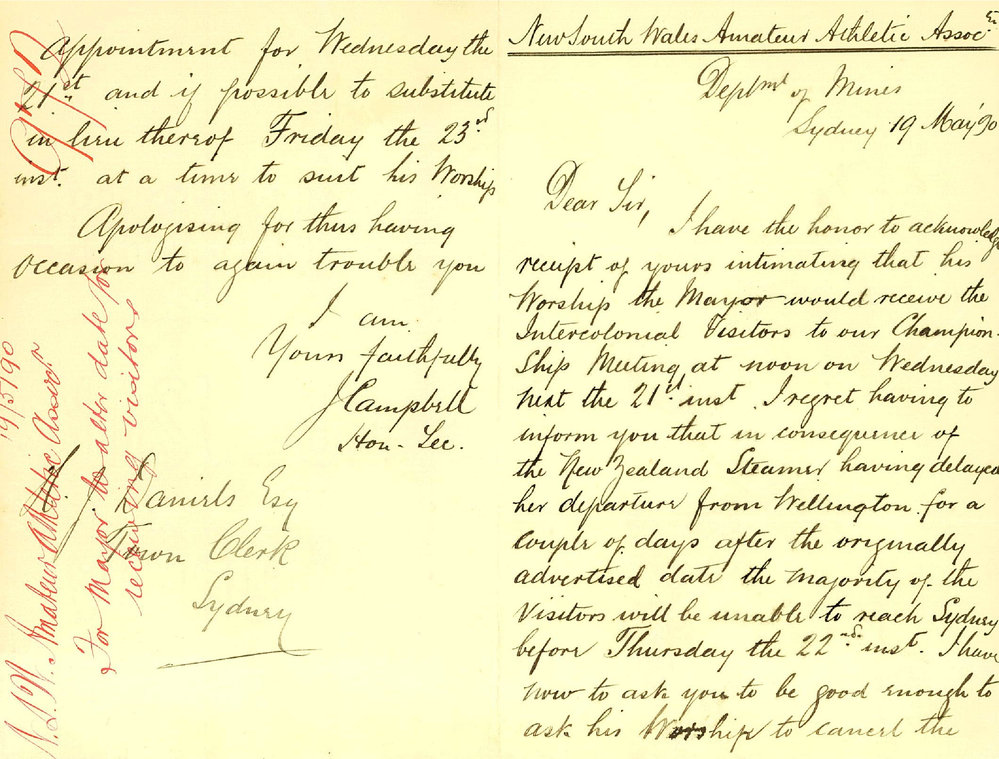 New South Wales Amateur Athletic Assoc.
Deptmt of Mines
Sydney 19 May '90
Dear Sir,
I have the honor to acknowledge
receipt of yours intimating that his
Worship the Mayor would receive the
Intercolonial Visitors to our Champion-
Ship Meeting at noon on Wednesday
next the 21st inst. I regret having to
inform you that in consequence of
the New Zealand Steamer having delayed
her departure from Wellington for a
couple of days after the originally
advertised date the majority of the
Visitors will be unable to reach Sydney
before Thursday the 22nd inst. I have
now to ask you to be good enough to
ask his Worship to cancel the
Appointment for Wednesday the
21st and if possible to substitute
in lieu thereof Friday the 23rd
inst. at a time to suit his Worship
Apologising for thus having
occasion to again trouble you
I am
Yours faithfully
J Campbell
Hon. Sec.
Daniels Esq
Town Clerk
Sydney
N.S.W. Amateur Athletic Assocn
19/5/90
For Mayor to alter date for
receiving visitors